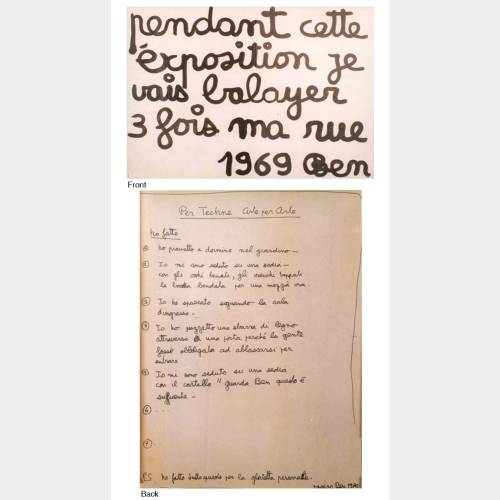 pendant cette
éxposition je
vais balayer
3 fois ma rue
1969 Ben
Front
Per Techne Arte per Arte
ho fatto
① ho provato a dormire nel giardino —
② Io mi sono seduto su una sedia —
con gli occhi bendati, gli orecchi tappati
la bocca bendata per una mezza ora.
③ Io ho spazzato la sala
d'ingresso —
④ Io ho poggetto una sbarra di legno
attraverso una porta perché la gente
fosse obbligata ad abbassarsi per
entrare
⑤ Io mi sono seduto su una sedia
con il cartello " guarda Ben questo è
sufficente —
⑥ . . .
⑦ .
PS ho fatto tutto questo per la gloria personale.
Ben
Back